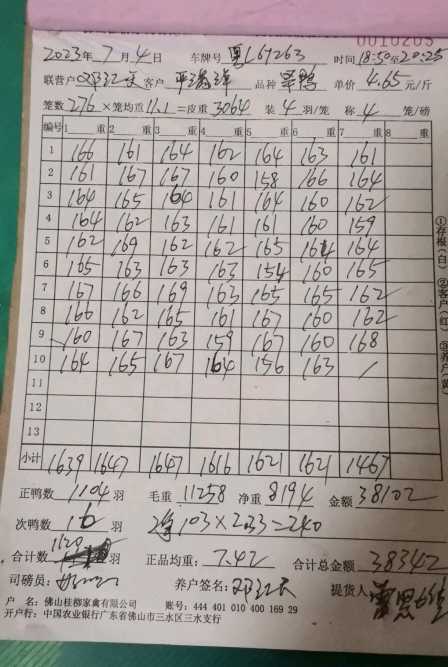 0010203
2023年7月4日 车牌号 粤L69263 时间18:50至20:25
联营户 客户 品种 单价4.65元/斤
笼数276×笼均重11.1=皮重3064 装4羽/笼 称4笼/磅
编号 1 重 2 重 3 重 4 重 5 重 6 重 7 重 8 重
1 166 161 164 162 164 163 161
2 161 167 167 160 158 166 164
3 164 165 164 161 164 160 162
4 164 162 163 161 161 160 159
5 162 169 162 162 165 164 164
6 165 163 163 163 154 160 165
7 167 166 169 163 165 165 162
8 166 162 165 161 167 160 162
9 160 167 163 159 167 160 168
10 164 165 167 164 156 163 /
11
12
13
小计 1639 1647 1647 1616 1621 1621 1467
正鸭数1104羽 毛重11258 净重8194 金额38102
次鸭数16羽 净103×2.33=240
合计数1120羽 正品均重:7.42 合计总金额38342
司磅员: 养户签名: 提货人
户 名:佛山桂柳家禽有限公司 账号:444 401 010 400 169 29
开户行:中国农业银行广东省佛山市三水区三水支行
①存根(白) ②客户(红) ③养户(黄)